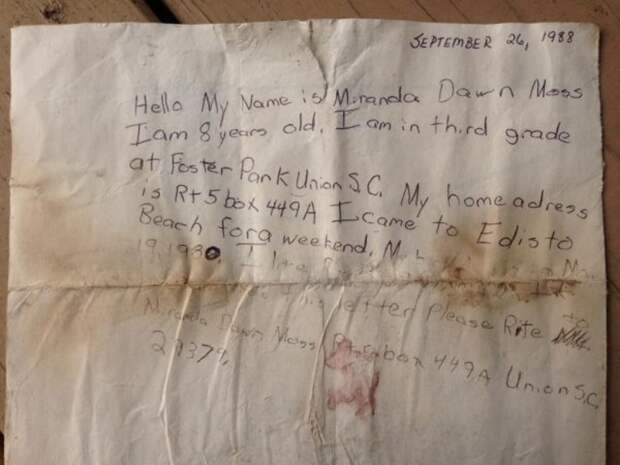 SEPTEMBER 26, 1988
Hello My Name is Miranda Dawn Moss
I am 8 years old. I am in third grade
at Foster Park Union S.C. My home adress
is Rt 5 box 449A I came to Edisto
Beach for a weekend.
19, 1980. I
letter Please Rite to
Miranda Dawn Moss Rt 5 box 449A Union S.C.
29379.